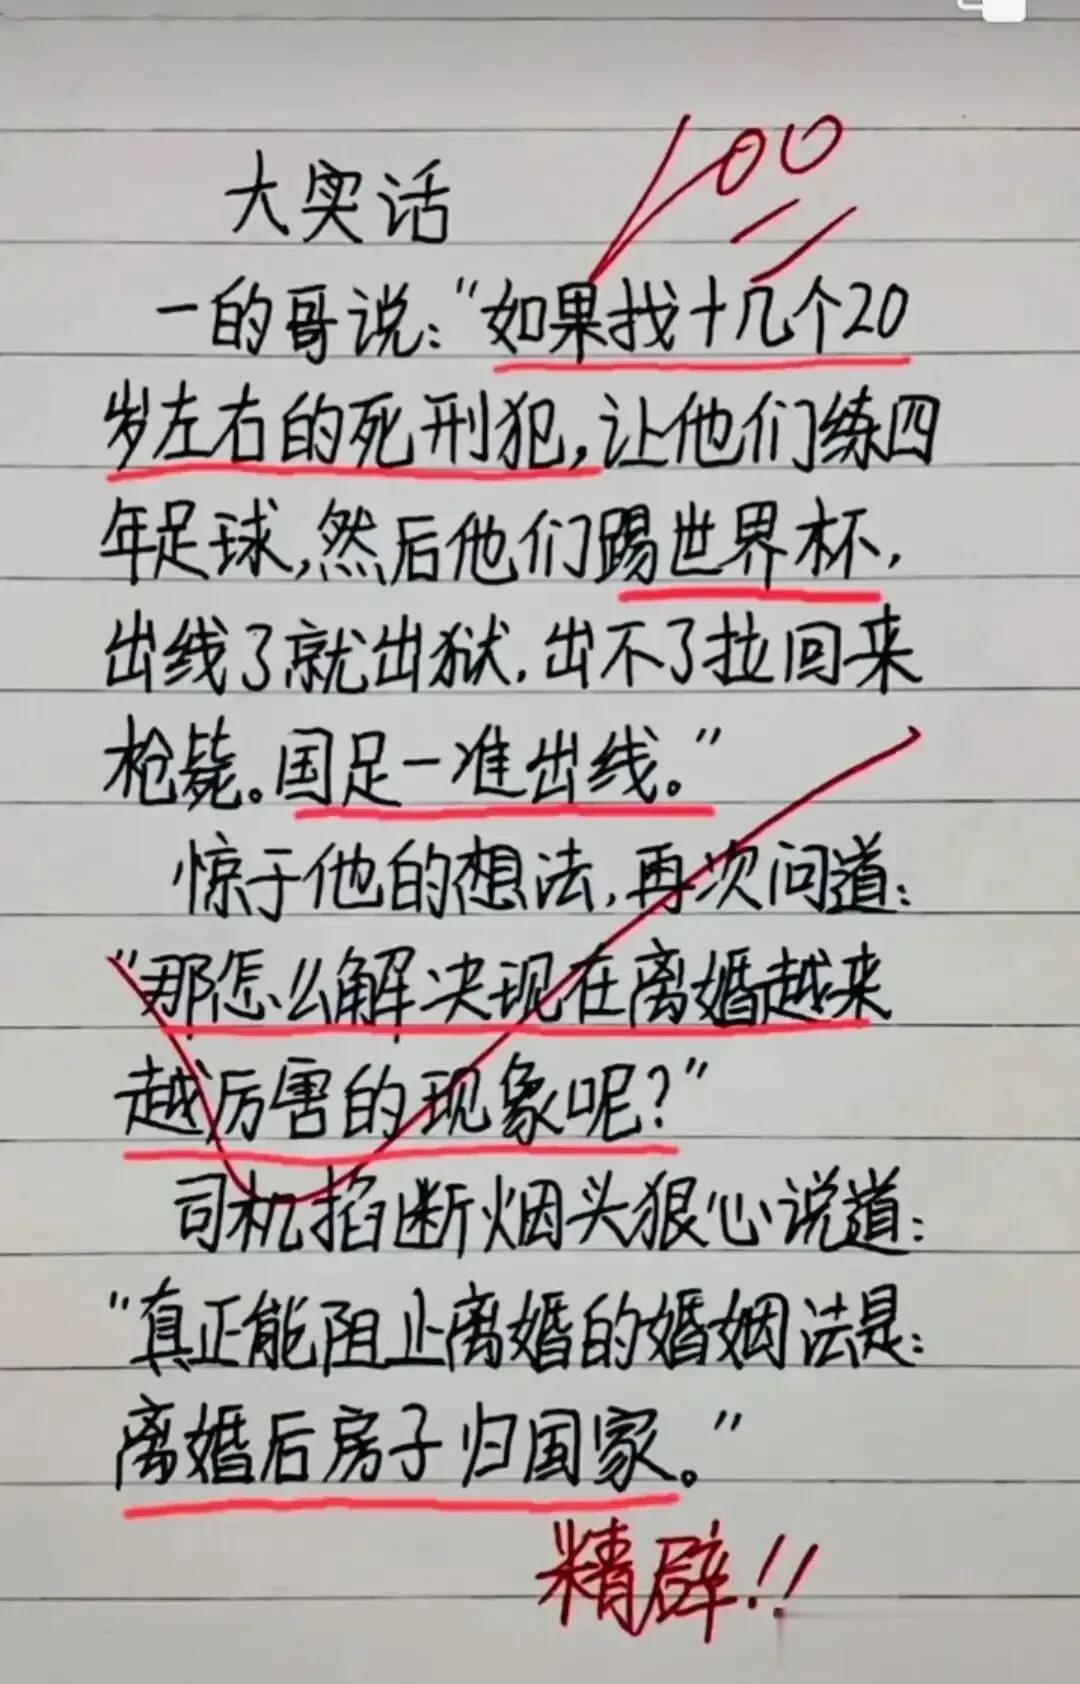 100
大实话
一的哥说:“如果找十几个20
岁左右的死刑犯,让他们练四
年足球,然后他们踢世界杯,
出线了就出狱,出不了拉回来
枪毙。国足一准出线。”
惊于他的想法,再次问道:
“那怎么解决现在离婚越来
越厉害的现象呢?”
司机掐断烟头狠心说道:
“真正能阻止离婚的婚姻法是:
离婚后房子归国家。”
精辟!!